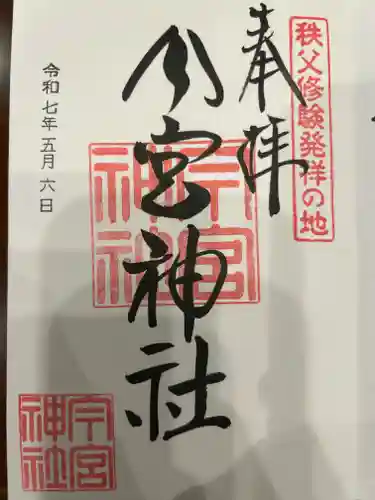 秩父修験発祥の地
奉拝
今宮神社
今宮神社
令和七年五月六日
今宮神社